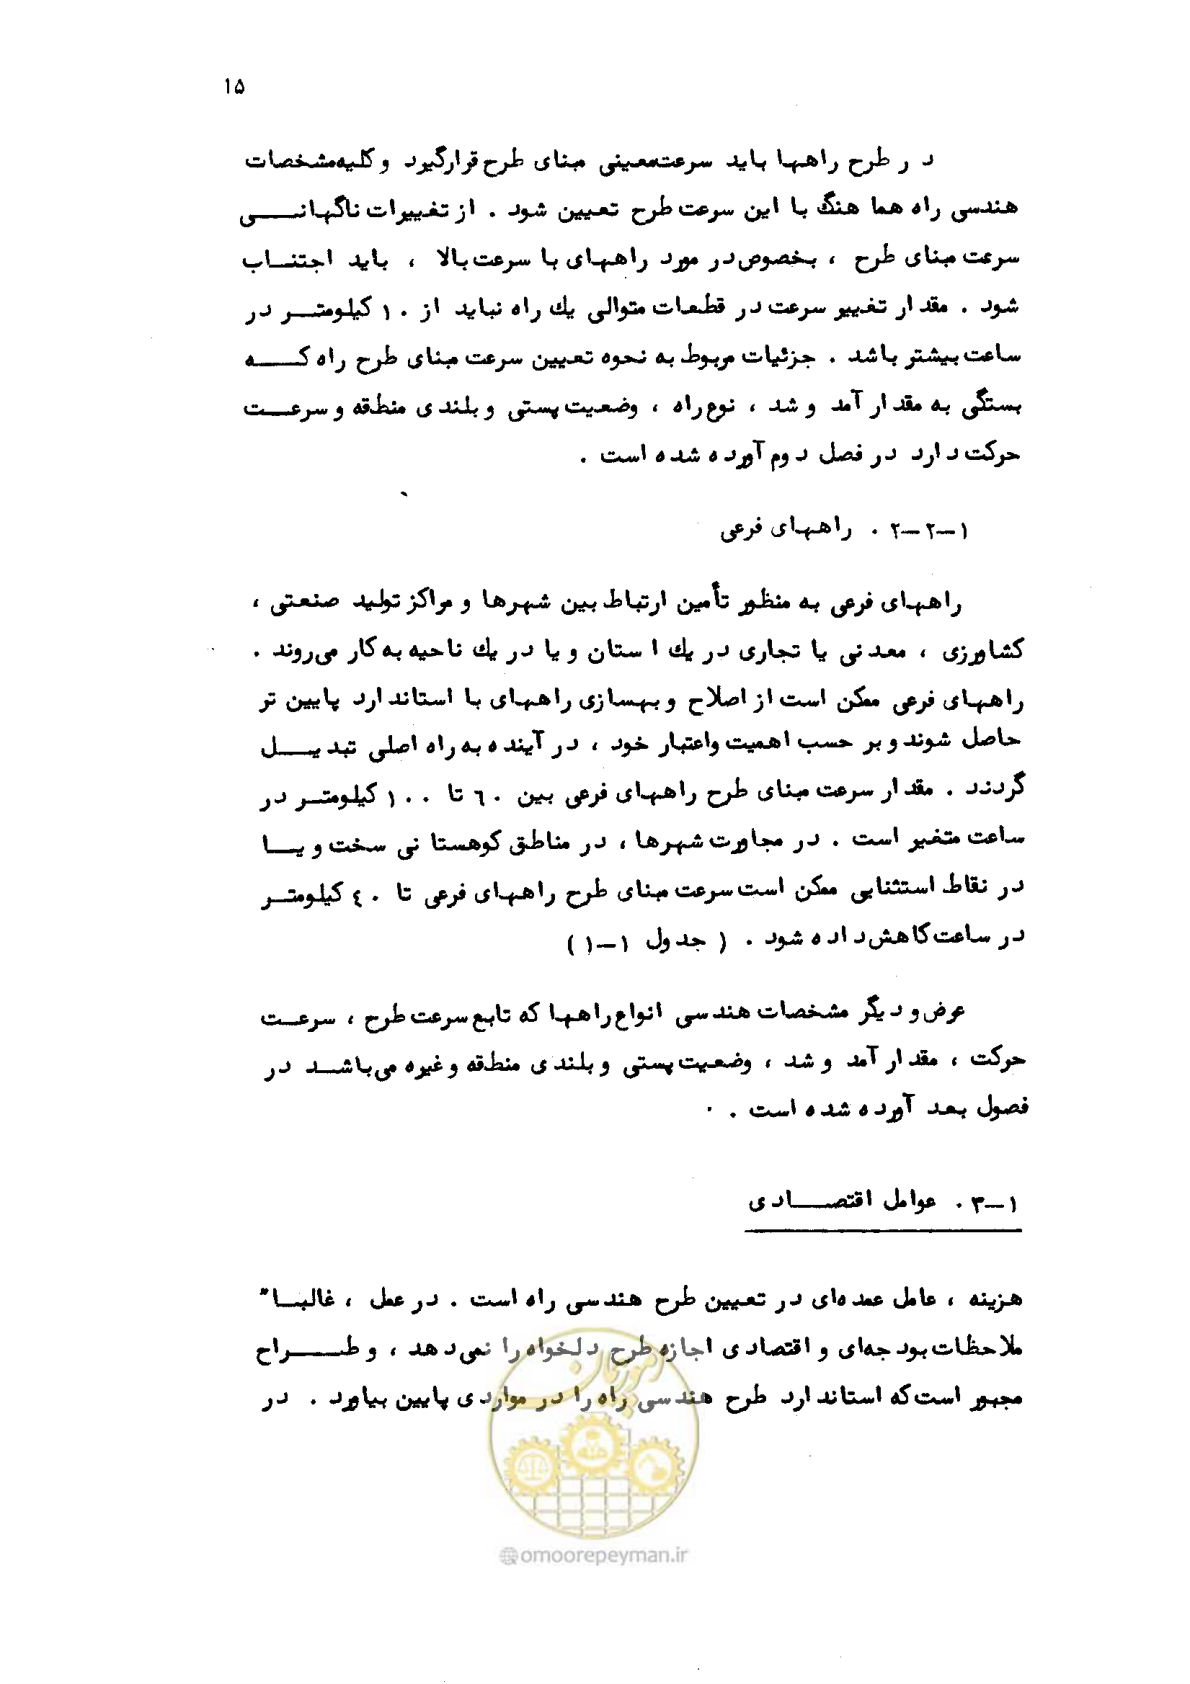 ۱۵
در طرح راهها باید سرعت معینی مبنای طرح قرار گیرد و کلیه مشخصات
هندسی راه هماهنگ با این سرعت طرح تعیین شود . از تغییرات ناگهانی
سرعت مبنای طرح ، بخصوص در مورد راههای با سرعت بالا ، باید اجتناب
شود . مقدار تغییر سرعت در قطعات متوالی یک راه نباید از ۱۰ کیلومتر در
ساعت بیشتر باشد . جزئیات مربوط به نحوه تعیین سرعت مبنای طرح راه که
بستگی به مقدار آمد و شد ، نوع راه ، وضعیت پستی و بلندی منطقه و سرعت
حرکت دارد در فصل دوم آورده شده است .
۱-۲-۲ . راههای فرعی
راههای فرعی به منظور تأمین ارتباط بین شهرها و مراکز تولید صنعتی ،
کشاورزی ، معدنی یا تجاری در یک استان و یا در یک ناحیه به کار می‌روند .
راههای فرعی ممکن است از اصلاح و بهسازی راههای با استاندارد پایین تر
حاصل شوند و بر حسب اهمیت و اعتبار خود ، در آینده به راه اصلی تبدیل
گردند . مقدار سرعت مبنای طرح راههای فرعی بین ۶۰ تا ۱۰۰ کیلومتر در
ساعت متغیر است . در مجاورت شهرها ، در مناطق کوهستانی سخت و یا
در نقاط استثنایی ممکن است سرعت مبنای طرح راههای فرعی تا ۴۰ کیلومتر
در ساعت کاهش داده شود . ( جدول ۱-۱ )
عرض و دیگر مشخصات هندسی انواع راهها که تابع سرعت طرح ، سرعت
حرکت ، مقدار آمد و شد ، وضعیت پستی و بلندی منطقه و غیره می‌باشد در
فصول بعد آورده شده است .
۱-۳ . عوامل اقتصادی
هزینه ، عامل عمده‌ای در تعیین طرح هندسی راه است . در عمل ، غالبا"
ملاحظات بودجه‌ای و اقتصادی اجازه طرح دلخواه را نمی‌دهد ، و طراح
مجبور است که استاندارد طرح هندسی راه را در مواردی پایین بیاورد . در
امور پیمان
@omoorepeyman.ir